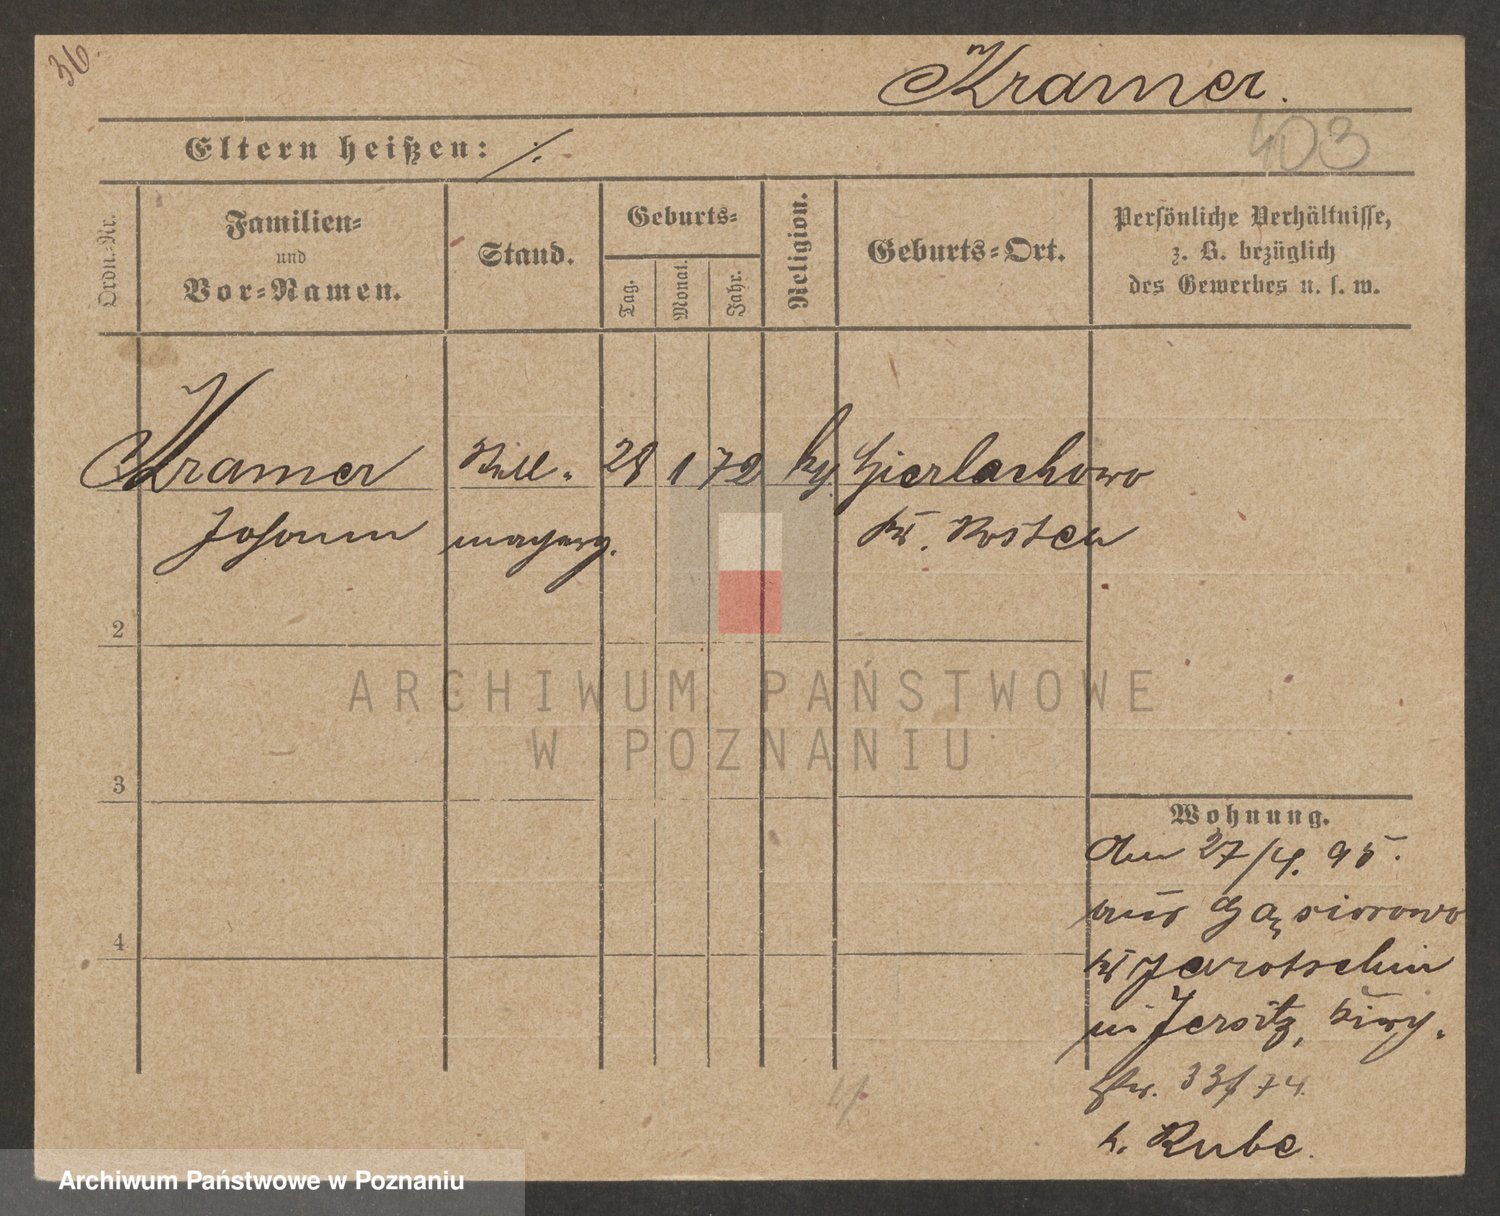 36.
Kramer.
Eltern heißen: ./.
403
Ordn.-Nr.
Familien-
und
Vor-Namen.
Stand.
Geburts-
Tag.
Monat.
Jahr.
Religion.
Geburts-Ort.
Persönliche Verhältnisse,
z. B. bezüglich
des Gewerbes u. s. w.
Kramer
Stell-
28
1
72
kg.
Gierlachowo
Johann
macherg.
Kr. Kosten
2
ARCHIWUM PAŃSTWOWE
W POZNANIU
3
Wohnung.
Am 27/4. 95.
aus Gąsiorowo
Kr Jarotschin
in Jersitz, Kirch-
str. 33/74.
b. Kube.
4
Archiwum Państwowe w Poznaniu